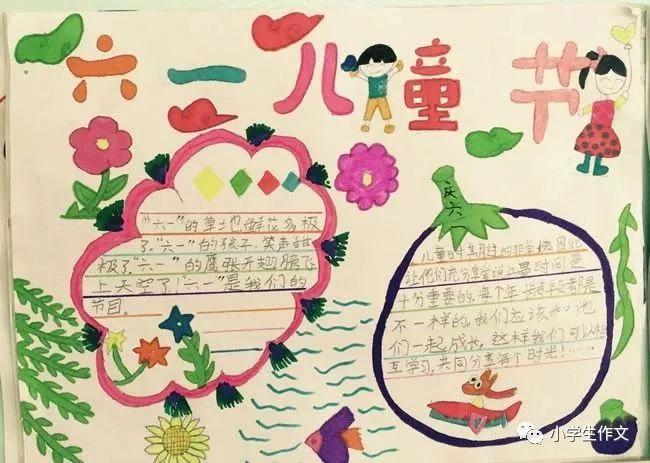 六一儿童节
"六一"的草地鲜花多极
了。"六一"的孩子,笑声甜
极了"六一"的鹰张开翅膀飞
上天空了!"六一"是我们的
节目.
庆六一
儿童时期时的非常快因此
让他们充分享受说些是时间是
十分重要的,每个年 都是
不一样的,我们应该和他
们一起成长,这样我们可以相
互学习,共同分享每个时光!……
小学生作文